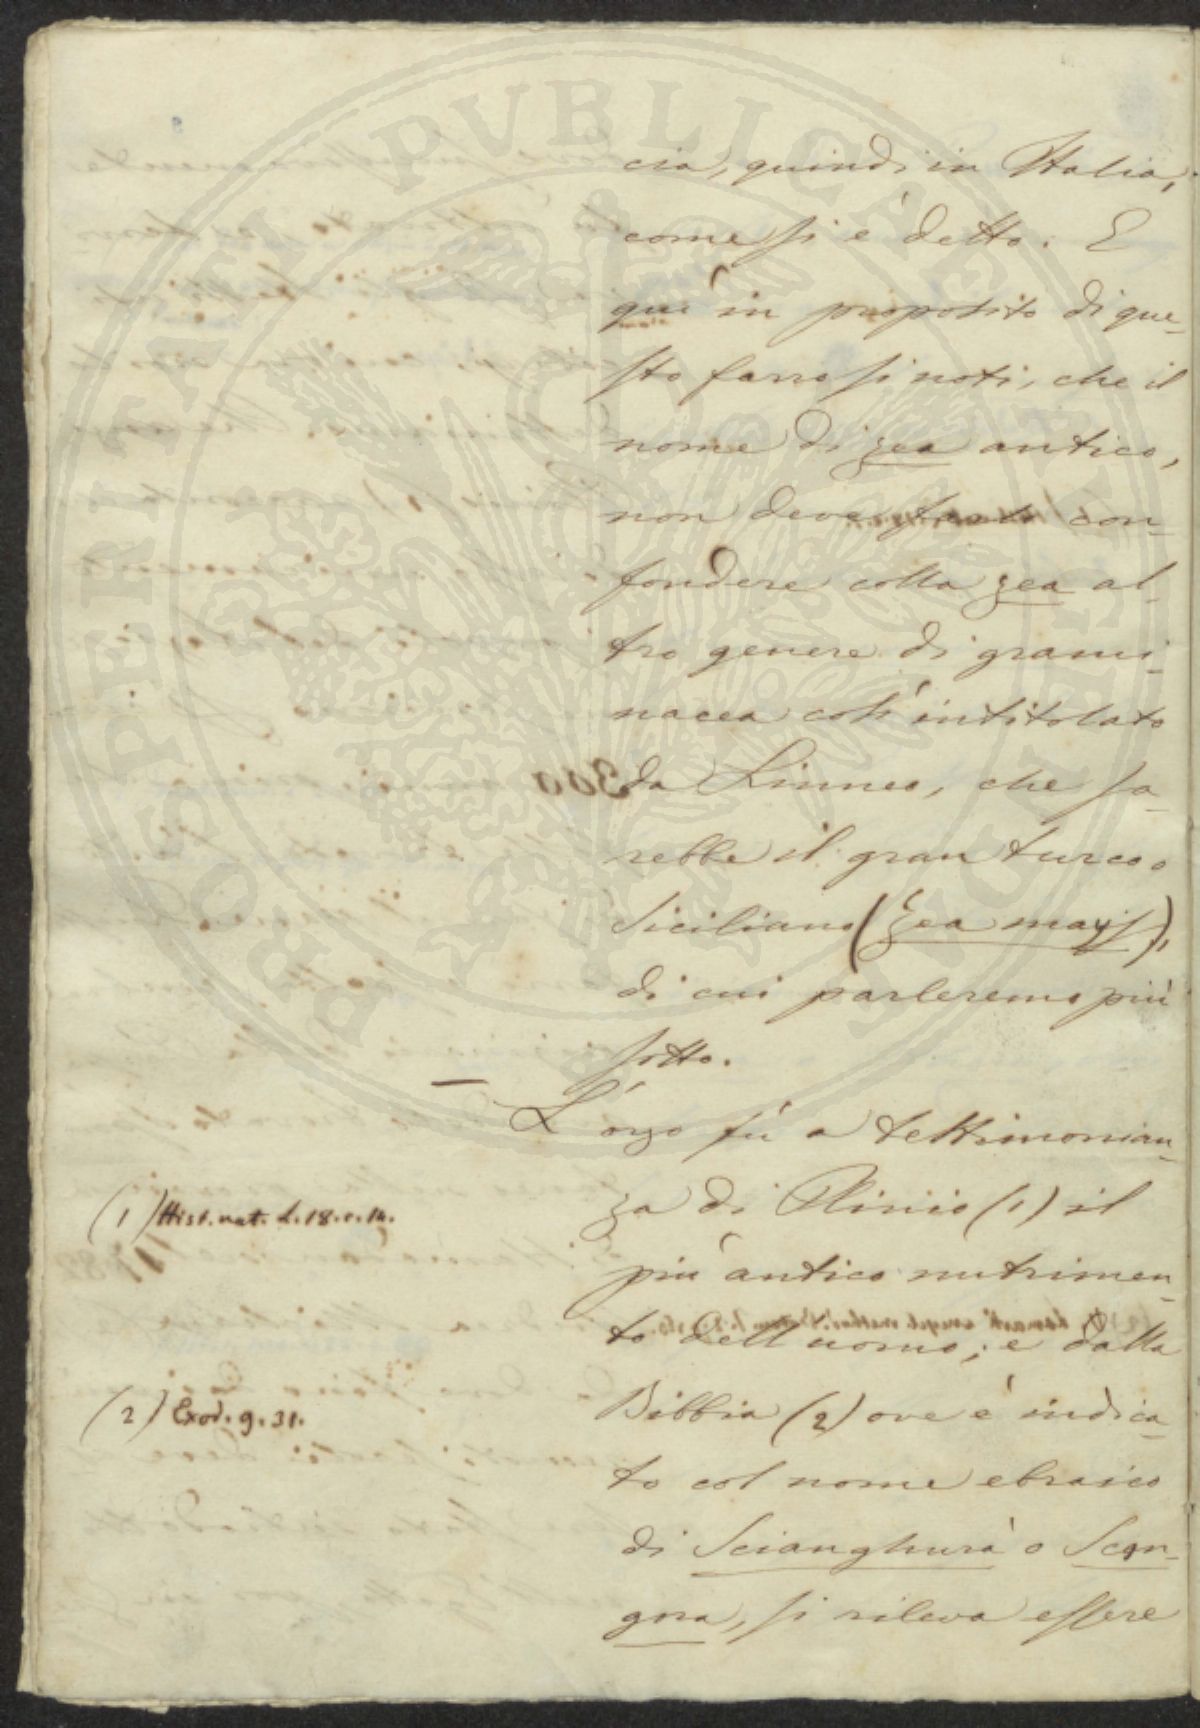 cia, quindi in Italia,
come si è detto. E
quì in proposito di que-
sto farro si noti, che il
nome di zea antico,
non deve con-
fondere colla zea al-
tro genere di grami-
nacea così intitolato
da Linneo, che sa-
rebbe il gran turco o
Siciliano (zea mays),
di cui parleremo più
sotto.
— L'orzo fù a testimonian-
za di Plinio (1) il
più antico nutrimen-
to dell'uomo; e dalla
Bibbia (2) ove è indica-
to col nome ebraico
di Scianghurà o Scen-
gora, si rileva essere
(1) Hist. nat. L. 18. c. 14.
(2) Exod. 9. 31.
PROSPERITATI PUBLICAE